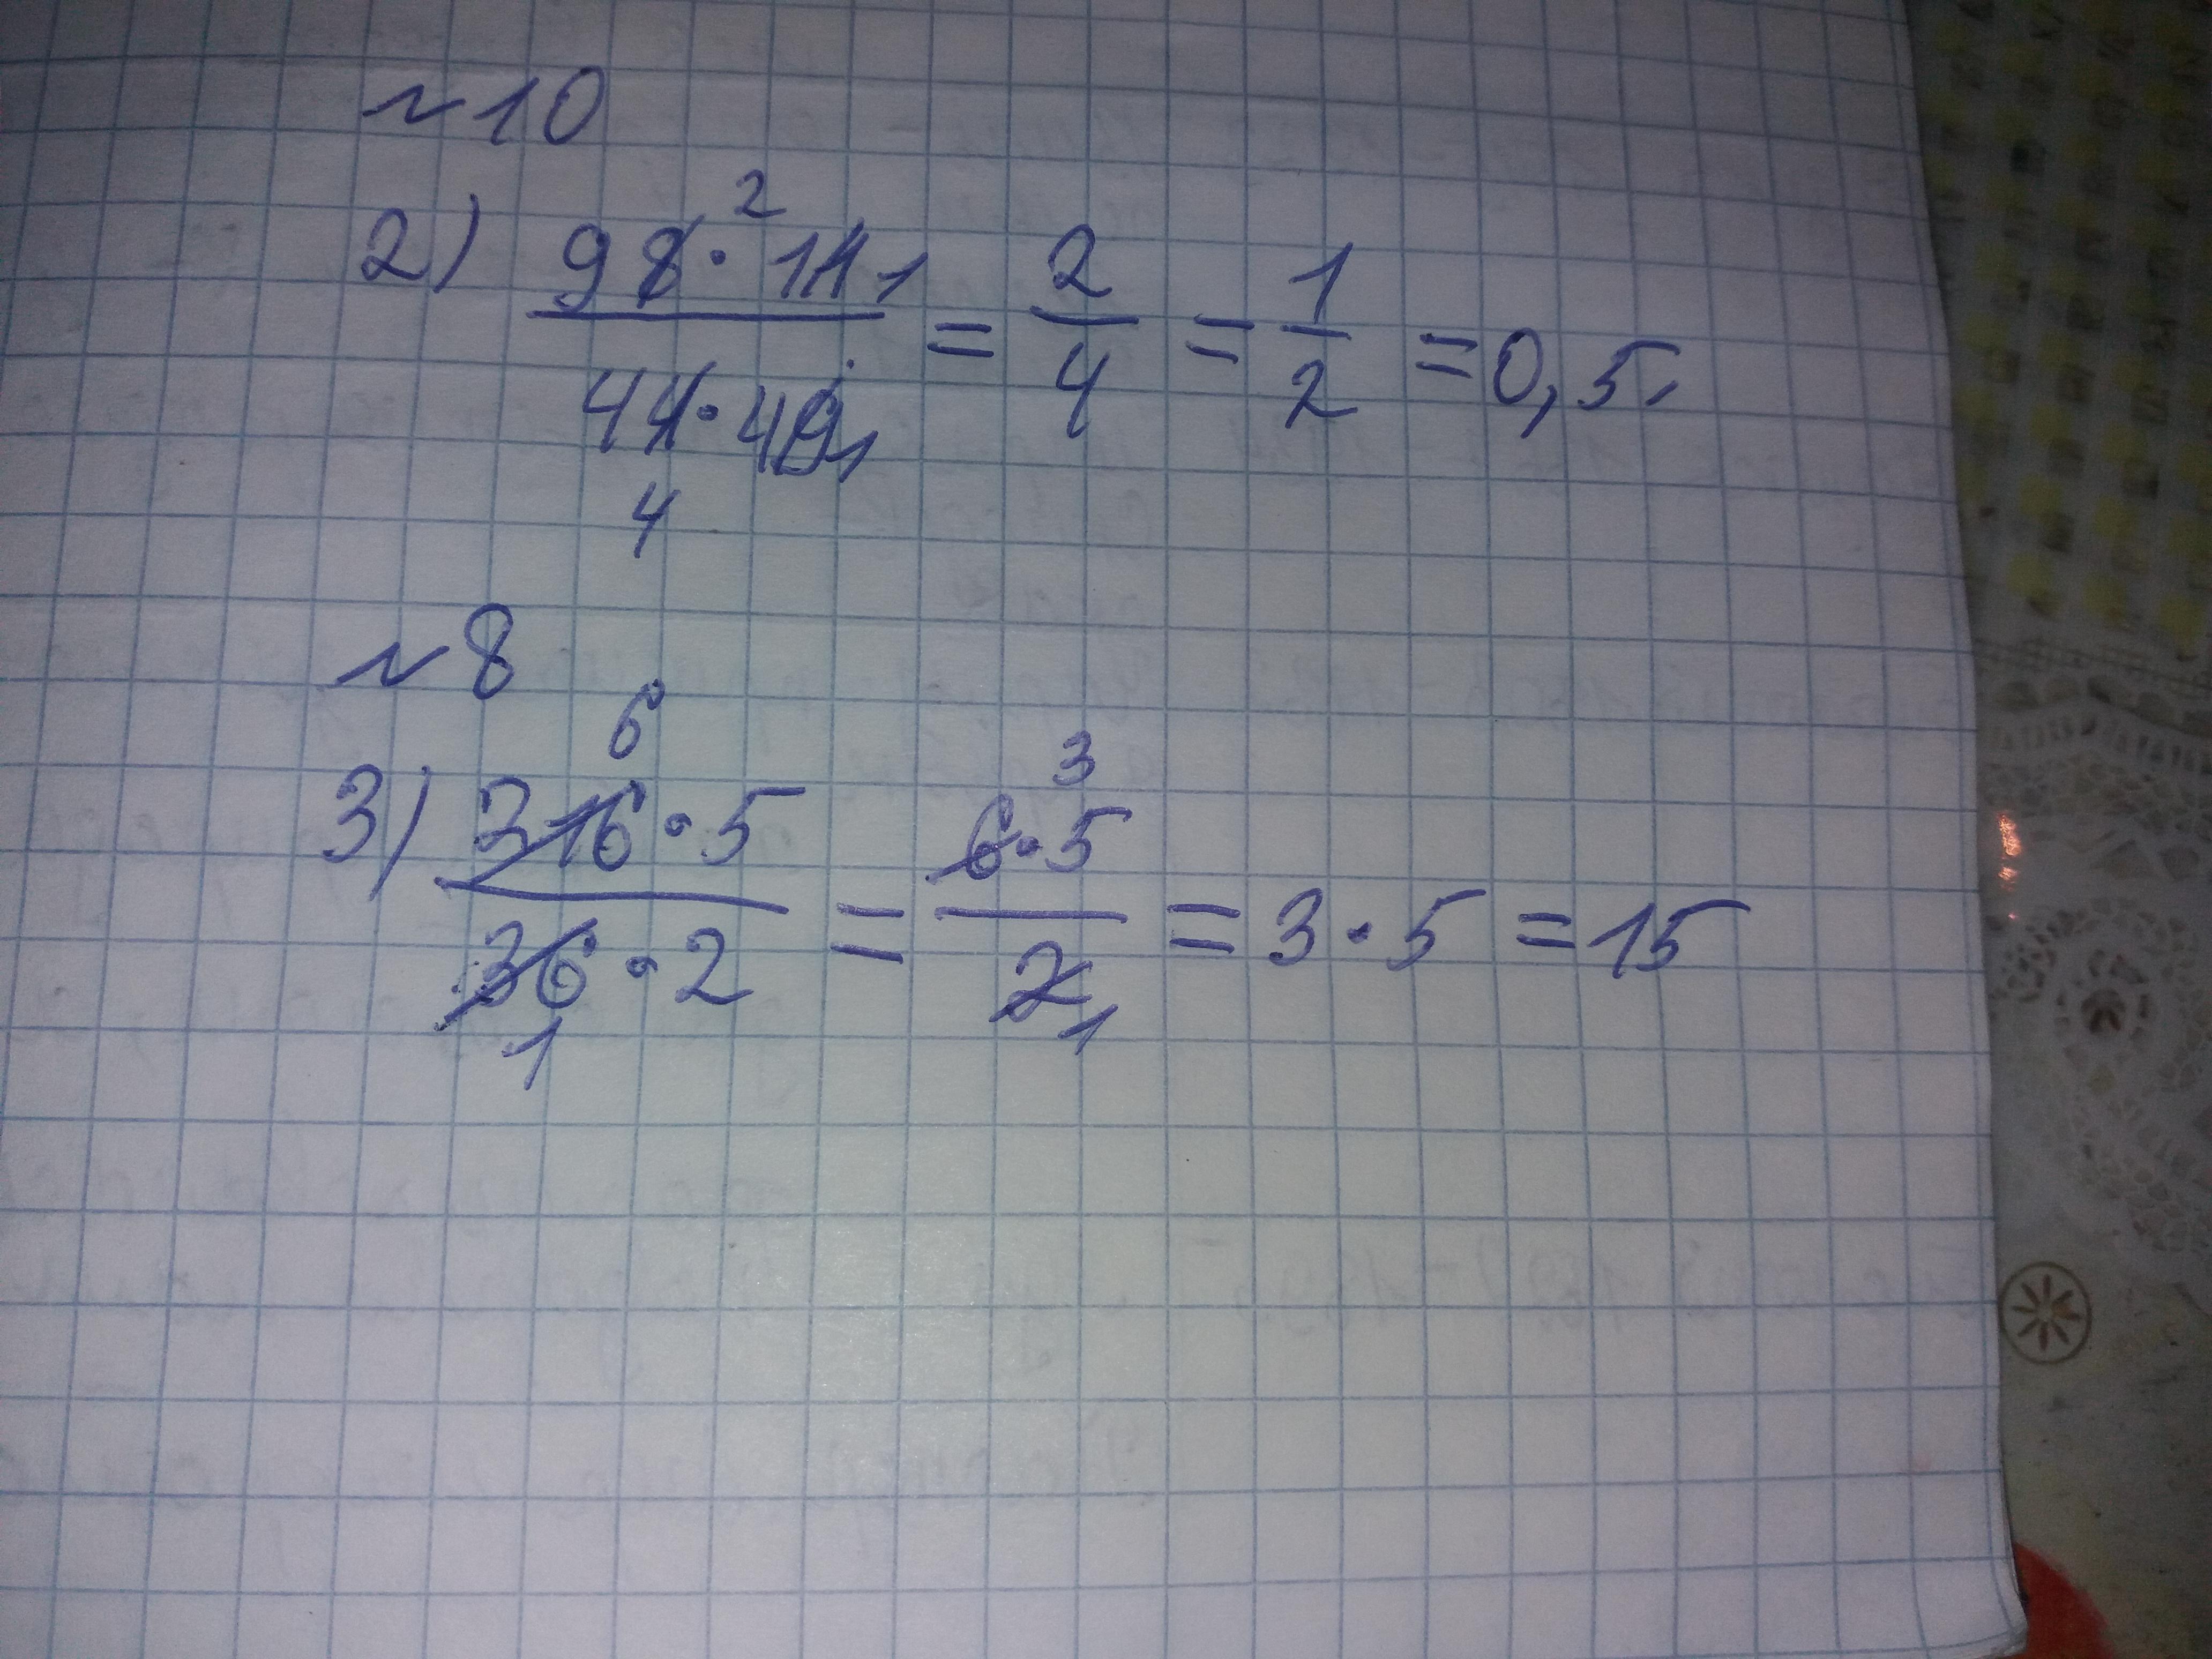 №10
2) 98² · 11₁ / 44₄ · 49₁ = 2/4 = 1/2 = 0,5.
№8
3) 316⁶ · 5 / 36₁ · 2 = 6³ · 5 / 2₁ = 3 · 5 = 15